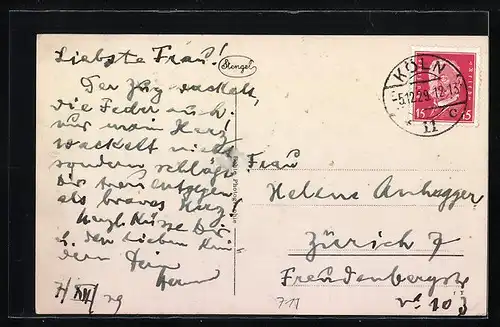 Liebste Frau!
Der Zug wackelt,
die Feder auch.
nur mein Herz
wackelt nicht
sondern schlägt
Dir treu entgegen
als braves Herz!
Herzl. Küsse Dir
u. den lieben Kin-
dern Dein
7/XII/29
Stengel
KÖLN
5.12.29.12-13
* 11 c
15 15
Frau
Helene Anhegger
Zürich 7
Freudenbergstr
No 103
711